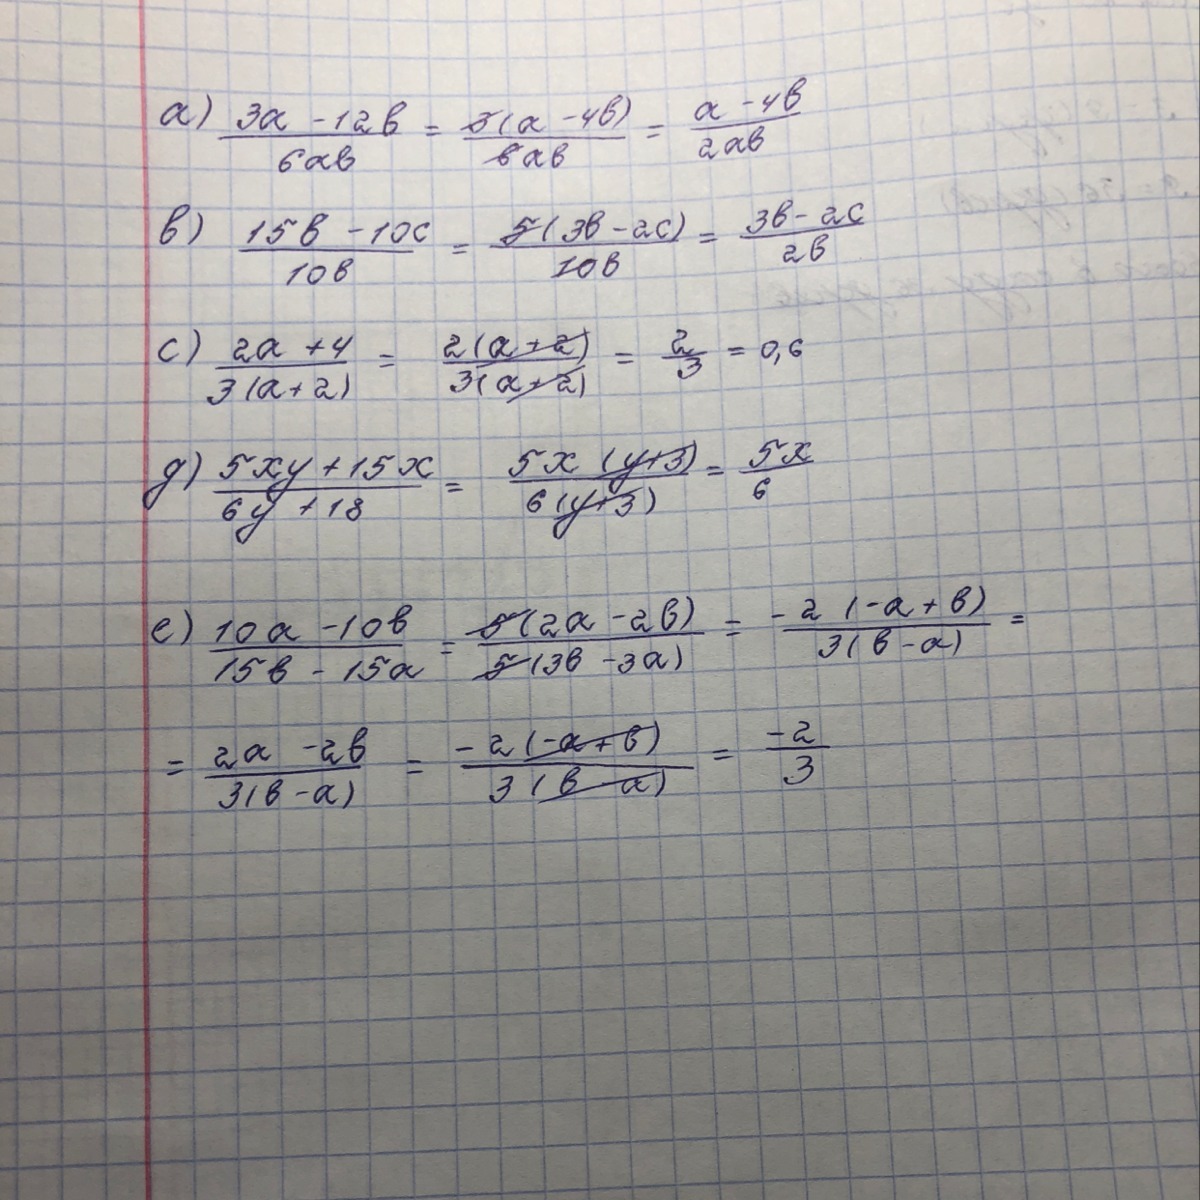 а) (3a - 12b)/(6ab) = (3(a - 4b))/(6ab) = (a - 4b)/(2ab)
в) (15b - 10c)/(10b) = (5(3b - 2c))/(10b) = (3b - 2c)/(2b)
с) (2a + 4)/(3(a + 2)) = (2(a + 2))/(3(a + 2)) = 2/3 = 0,6
д) (5xy + 15x)/(6y + 18) = (5x (y + 3))/(6(y + 3)) = 5x/6
е) (10a - 10b)/(15b - 15a) = (5(2a - 2b))/(5(3b - 3a)) = (-2 (-a + b))/(3(b - a)) =
= (2a - 2b)/(3(b - a)) = (-2(-a + b))/(3(b - a)) = -2/3